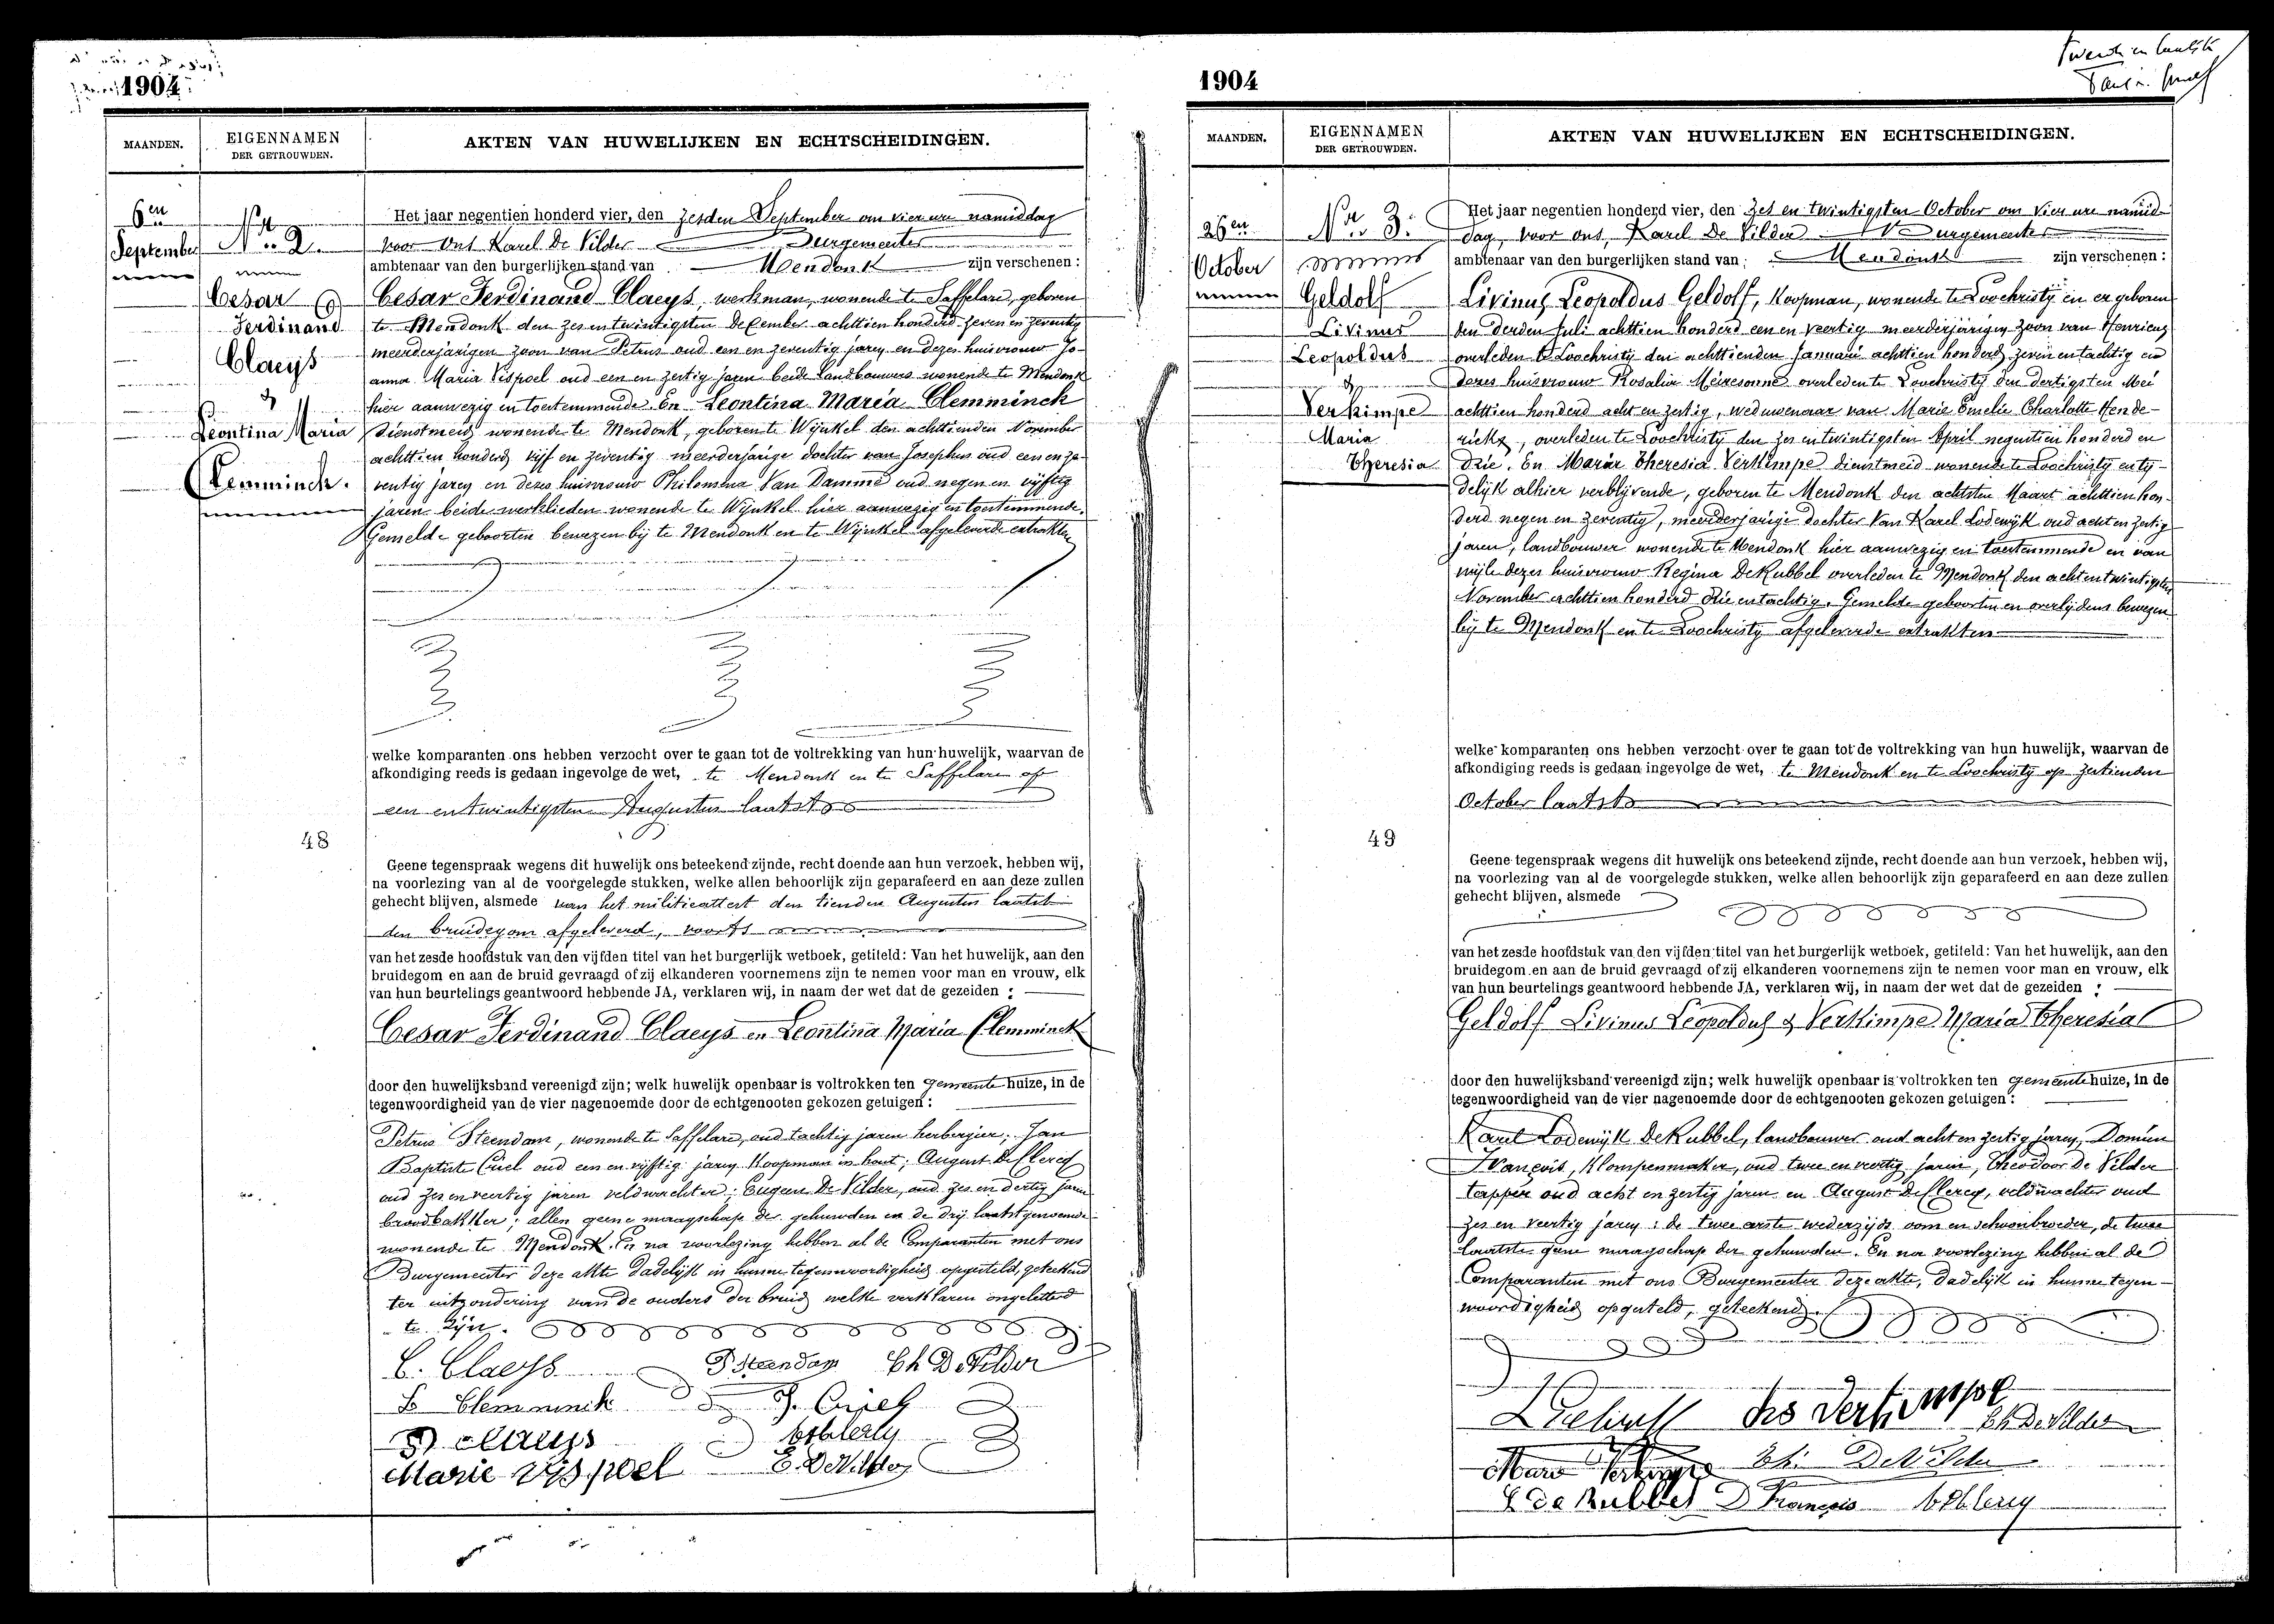 1904
MAANDEN.
EIGENNAMEN
DER GETROUWDEN.
AKTEN VAN HUWELIJKEN EN ECHTSCHEIDINGEN.
6en
September
Nr. 2.
Cesar
Ferdinand
Claeys
&
Leontina Maria
Clemminck.
Het jaar negentien honderd vier, den zesden September om vier ure namiddag
voor ons Karel De Vilder Burgemeester
ambtenaar van den burgerlijken stand van Mendonk zijn verschenen:
Cesar Ferdinand Claeys, werkman, wonende te Saffelare, geboren
te Mendonk den zes en twintigsten December achttien honderd zeven en zeventig
meerderjarigen zoon van Petrus oud een en zeventig jaren en dezes huisvrouw Jo-
anna Maria Vispoel oud een en zestig jaren beide landbouwers wonende te Mendonk
hier aanwezig en toestemmende. En Leontina Maria Clemminck
dienstmeid wonende te Mendonk, geboren te Wijnkel den achttienden November
achttien honderd vijf en zeventig meerderjarige dochter van Josephus oud een en ze-
ventig jaren en dezes huisvrouw Philomena Van Damme oud negen en vijftig
jaren beide werklieden wonende te Wijnkel hier aanwezig en toestemmende.
Gemelde geboorten bewezen bij te Mendonk en te Wijnkel afgeleverde extrakten
welke komparanten ons hebben verzocht over te gaan tot de voltrekking van hun huwelijk, waarvan de
afkondiging reeds is gedaan ingevolge de wet, te Mendonk en te Saffelare op
een en twintigsten Augustus laatst
48
Geene tegenspraak wegens dit huwelijk ons beteekend zijnde, recht doende aan hun verzoek, hebben wij,
na voorlezing van al de voorgelegde stukken, welke allen behoorlijk zijn geparafeerd en aan deze zullen
gehecht blijven, alsmede van het militieattest den tienden Augustus laatst
den bruidegom afgeleverd, voorts
van het zesde hoofdstuk van den vijfden titel van het burgerlijk wetboek, getiteld: Van het huwelijk, aan den
bruidegom en aan de bruid gevraagd of zij elkanderen voornemens zijn te nemen voor man en vrouw, elk
van hun beurtelings geantwoord hebbende JA, verklaren wij, in naam der wet dat de gezeiden :
Cesar Ferdinand Claeys en Leontina Maria Clemminck
door den huwelijksband vereenigd zijn; welk huwelijk openbaar is voltrokken ten gemeente huize, in de
tegenwoordigheid van de vier nagenoemde door de echtgenooten gekozen getuigen:
Petrus Steendam, wonende te Saffelare, oud tachtig jaren herbergier; Jan
Baptiste Criel oud een en vijftig jaren koopman in hout; August De Clercq
oud zes en veertig jaren veldwachter; Eugeen De Vilder, oud zes en dertig jaren
broodbakker; allen geene maagschap der gehuwden en de drij laatstgenoemde
wonende te Mendonk. En na voorlezing hebben al de Comparanten met ons
Burgemeester deze akte dadelijk in hunne tegenwoordigheid opgesteld, geteekend
ter uitzondering van de ouders der bruid welke verklaren ongeletterd
te zijn.
C. Claeys P Steendam Ch De Vilder
L Clemminck J. Criel
P claeys A De Clercq
Marie Vispoel E. De Vilder
1904
MAANDEN.
EIGENNAMEN
DER GETROUWDEN.
AKTEN VAN HUWELIJKEN EN ECHTSCHEIDINGEN.
26en
October
Nr. 3.
Geldolf
Livinus
Leopoldus
&
Verkimpe
Maria
Theresia
Het jaar negentien honderd vier, den zes en twintigsten October om vier ure namid-
dag, voor ons, Karel De Vilder Burgemeester
ambtenaar van den burgerlijken stand van Mendonk zijn verschenen:
Livinus Leopoldus Geldolf, koopman, wonende te Loochristy en er geboren
den derden Juli achttien honderd een en veertig meerderjarigen zoon van Henricus
overleden te Loochristy den achttienden Januari achttien honderd zeven en tachtig en
dezes huisvrouw Rosalia Meiresonne overleden te Loochristy den dertigsten Mei
achttien honderd acht en zestig, weduwenaar van Marie Emelie Charlotte Hende-
rickx, overleden te Loochristy den zes en twintigsten April negentien honderd en
drie. En Maria Theresia Verkimpe dienstmeid wonende te Loochristy en ty-
delijk alhier verblijvende, geboren te Mendonk den achtsten Maart achttien hon-
derd negen en zeventig, meerderjarige dochter van Karel Lodewijk oud acht en zestig
jaren, landbouwer wonende te Mendonk hier aanwezig en toestemmende en van
wijle dezes huisvrouw Regina DeKubbel overleden te Mendonk den acht en twintigsten
November achttien honderd drie en tachtig. Gemelde geboorten en overlijdens bewezen
bij te Mendonk en te Loochristy afgeleverde extrakten
welke komparanten ons hebben verzocht over te gaan tot de voltrekking van hun huwelijk, waarvan de
afkondiging reeds is gedaan ingevolge de wet, te Mendonk en te Loochristy op zestienden
October laatst
49
Geene tegenspraak wegens dit huwelijk ons beteekend zijnde, recht doende aan hun verzoek, hebben wij,
na voorlezing van al de voorgelegde stukken, welke allen behoorlijk zijn geparafeerd en aan deze zullen
gehecht blijven, alsmede
van het zesde hoofdstuk van den vijfden titel van het burgerlijk wetboek, getiteld: Van het huwelijk, aan den
bruidegom en aan de bruid gevraagd of zij elkanderen voornemens zijn te nemen voor man en vrouw, elk
van hun beurtelings geantwoord hebbende JA, verklaren wij, in naam der wet dat de gezeiden :
Geldolf Livinus Leopoldus & Verkimpe Maria Theresia
door den huwelijksband vereenigd zijn; welk huwelijk openbaar is voltrokken ten gemeente huize, in de
tegenwoordigheid van de vier nagenoemde door de echtgenooten gekozen getuigen:
Karel Lodewijk DeKubbel, landbouwer oud acht en zestig jaren, Domien
François, klompenmaker, oud twee en veertig jaren, Theodoor De Vilder
tapper oud acht en zestig jaren en August De Clercq, veldwachter oud
zes en veertig jaren: de twee eerste wederzijds oom en schoonbroeder, de twee
laatste geene maagschap der gehuwden. En na voorlezing hebben al de
Comparanten met ons Burgemeester deze akte, dadelijk in hunne tegen-
woordigheid opgesteld, geteekend.
Verkimpe Ch De Vilder
Marie Verkimpe Th. De Vilder
De Kubbel D François A De Clercq